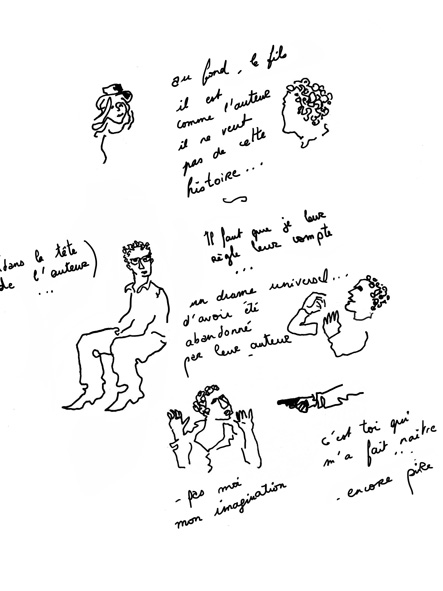 au fond, le fils
il est
comme l'auteur
il ne veut
pas de cette
histoire...
(dans la tête
de l'auteur)
...
Il faut que je leur
règle leur compte
...
un drame universel...
d'avoir été
abandonné
par leur auteur
- pas moi
mon imagination
c'est toi qui
m'a fait naitre
...
- encore pire